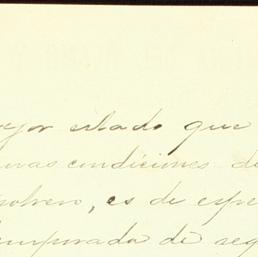 ejor estado que
nas condiciones de
es de espe
temporada de seg